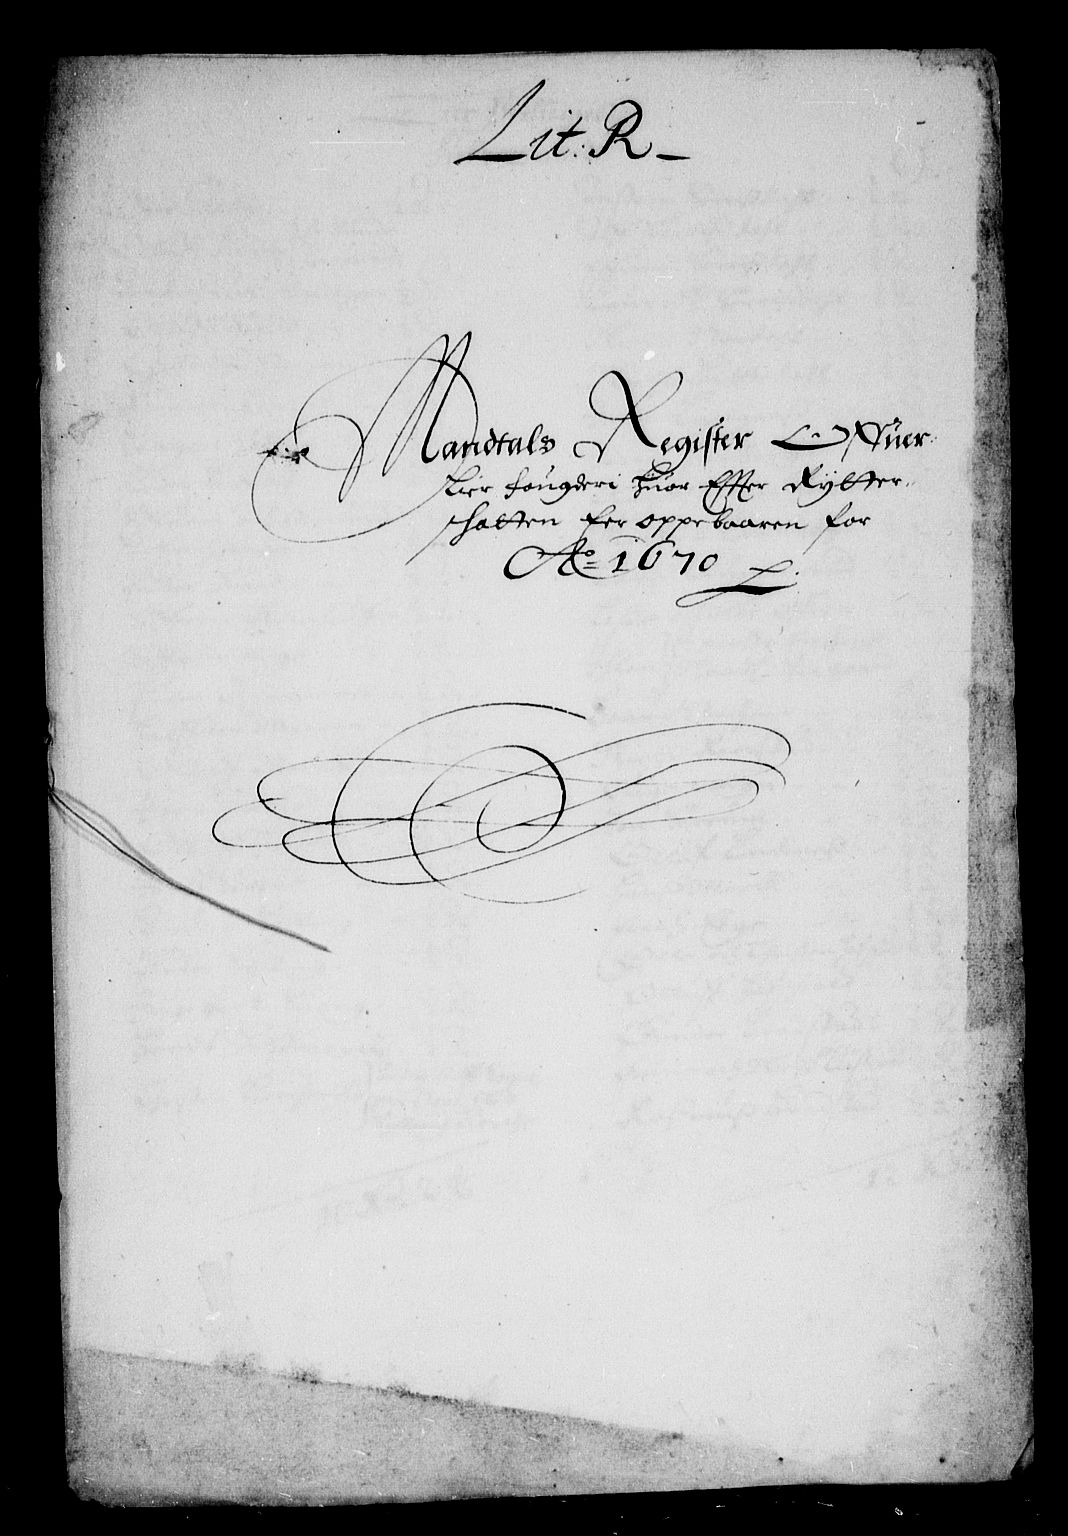 Lit: R_
Mandtals Register Offuer
Lier fougderi huor Effter Rytter=
schatten Er oppebaaren for
Ao 1670